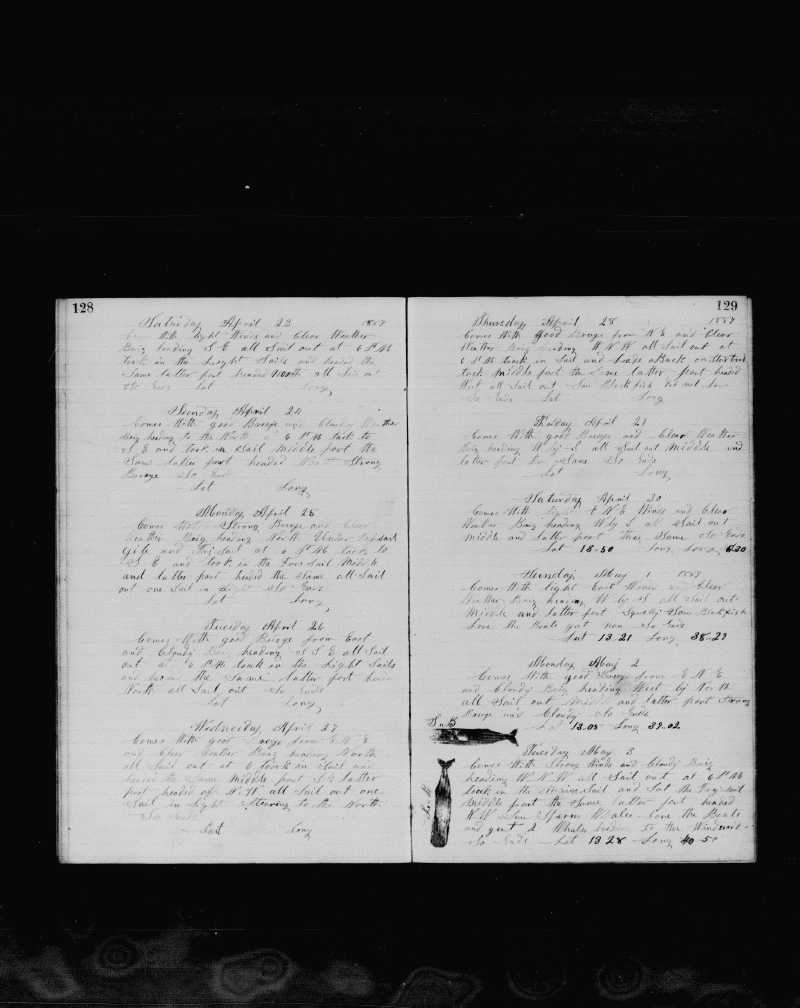 128
Saturday April 23 1887
With light Winds and Clear Weather
Brig heading S E all Sail out at 6 P M
took in the Light Sails and headed the
Same latter part headed North all Sail out
So Ends Lat Long
Sunday April 24
Comes With good Breeze and Cloudy Weather
Brig heading to the North at 6 P M tack to
S E and took in Sail Middle part the
Same latter part headed North Strong
Breeze So Ends
Lat Long
Monday April 25
Comes With Strong Breeze and Clear
Weather Brig heading North Under
Gibe and Tri Sail at 6 P M tack to
S E and took in the Fore Sail Middle
and latter part headed the Same all Sail
out one Sail in Sight So Ends
Lat Long
Tuesday April 26
Comes With good Breeze from East
and Cloudy Brig heading S S E all Sail
out at 6 P M took in the Light Sails
and headed the Same latter part headed
North all Sail out So Ends
Lat Long
Wednesday April 27
Comes With good Breeze from E N E
and Clear Weather Brig heading North
all Sail out at 6 took in Sail and
headed the Same Middle part latter
part headed N W all Sail out one
Sail in Sight Stearing to the North
So Ends
Lat Long
129
Thursday April 28 1887
Comes With good Breeze from N E and Clear
Weather Brig heading W N W all Sail out at
6 P M took in Sail and aBack on
tack Middle part the Same latter part headed
West all Sail out Saw Blackfish did not Lore
So Ends Lat Long
Friday April 29
Comes With good Breeze and Clear Weather
Brig heading W by S all Sail out Middle and
latter part the Same So Ends
Lat Long
Saturday April 30
Comes With light N E Winds and Clear
Weather Brig heading W by S all Sail out
Middle and latter part the Same So Ends
Lat 13-50 Long
Sunday May 1 1887
Comes With light East Winds and Clear
Weather Brig heading W by S all Sail out
Middle and latter part Squally Saw Blackfish
Lore the Boats got non So Ends
Lat 13-21 Long 38-29
Monday May 2
Comes With good Breeze from E N E
and Cloudy Brig heading West by North
all Sail out Middle and latter part Strong
Breeze and Cloudy So Ends
Lat 13-05 Long 39-02
Tuesday May 3
Comes With Strong Winds and Cloudy Brig
heading W N W all Sail out at 6 P M
took in the Main Sail and Sat the Try Sail
Middle part the Same latter part headed
N W Saw Sparm Whales Lore the Boats
and got 2 Whales to the Windward
So Ends Lat 13-28 Long 40-50